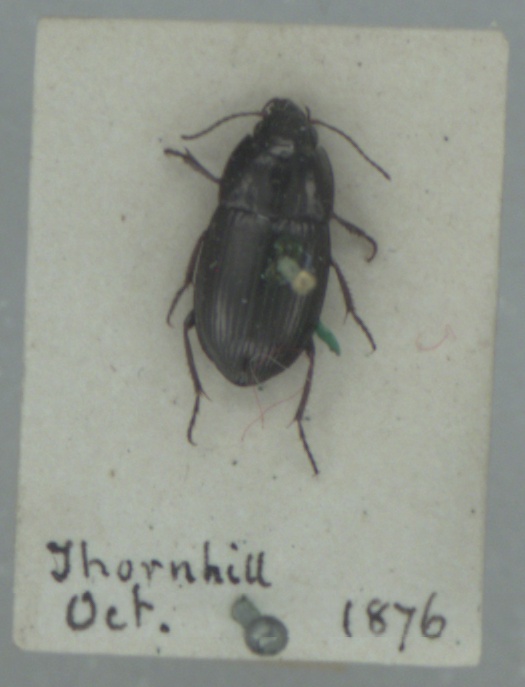 Thornhill
Oct. 1876